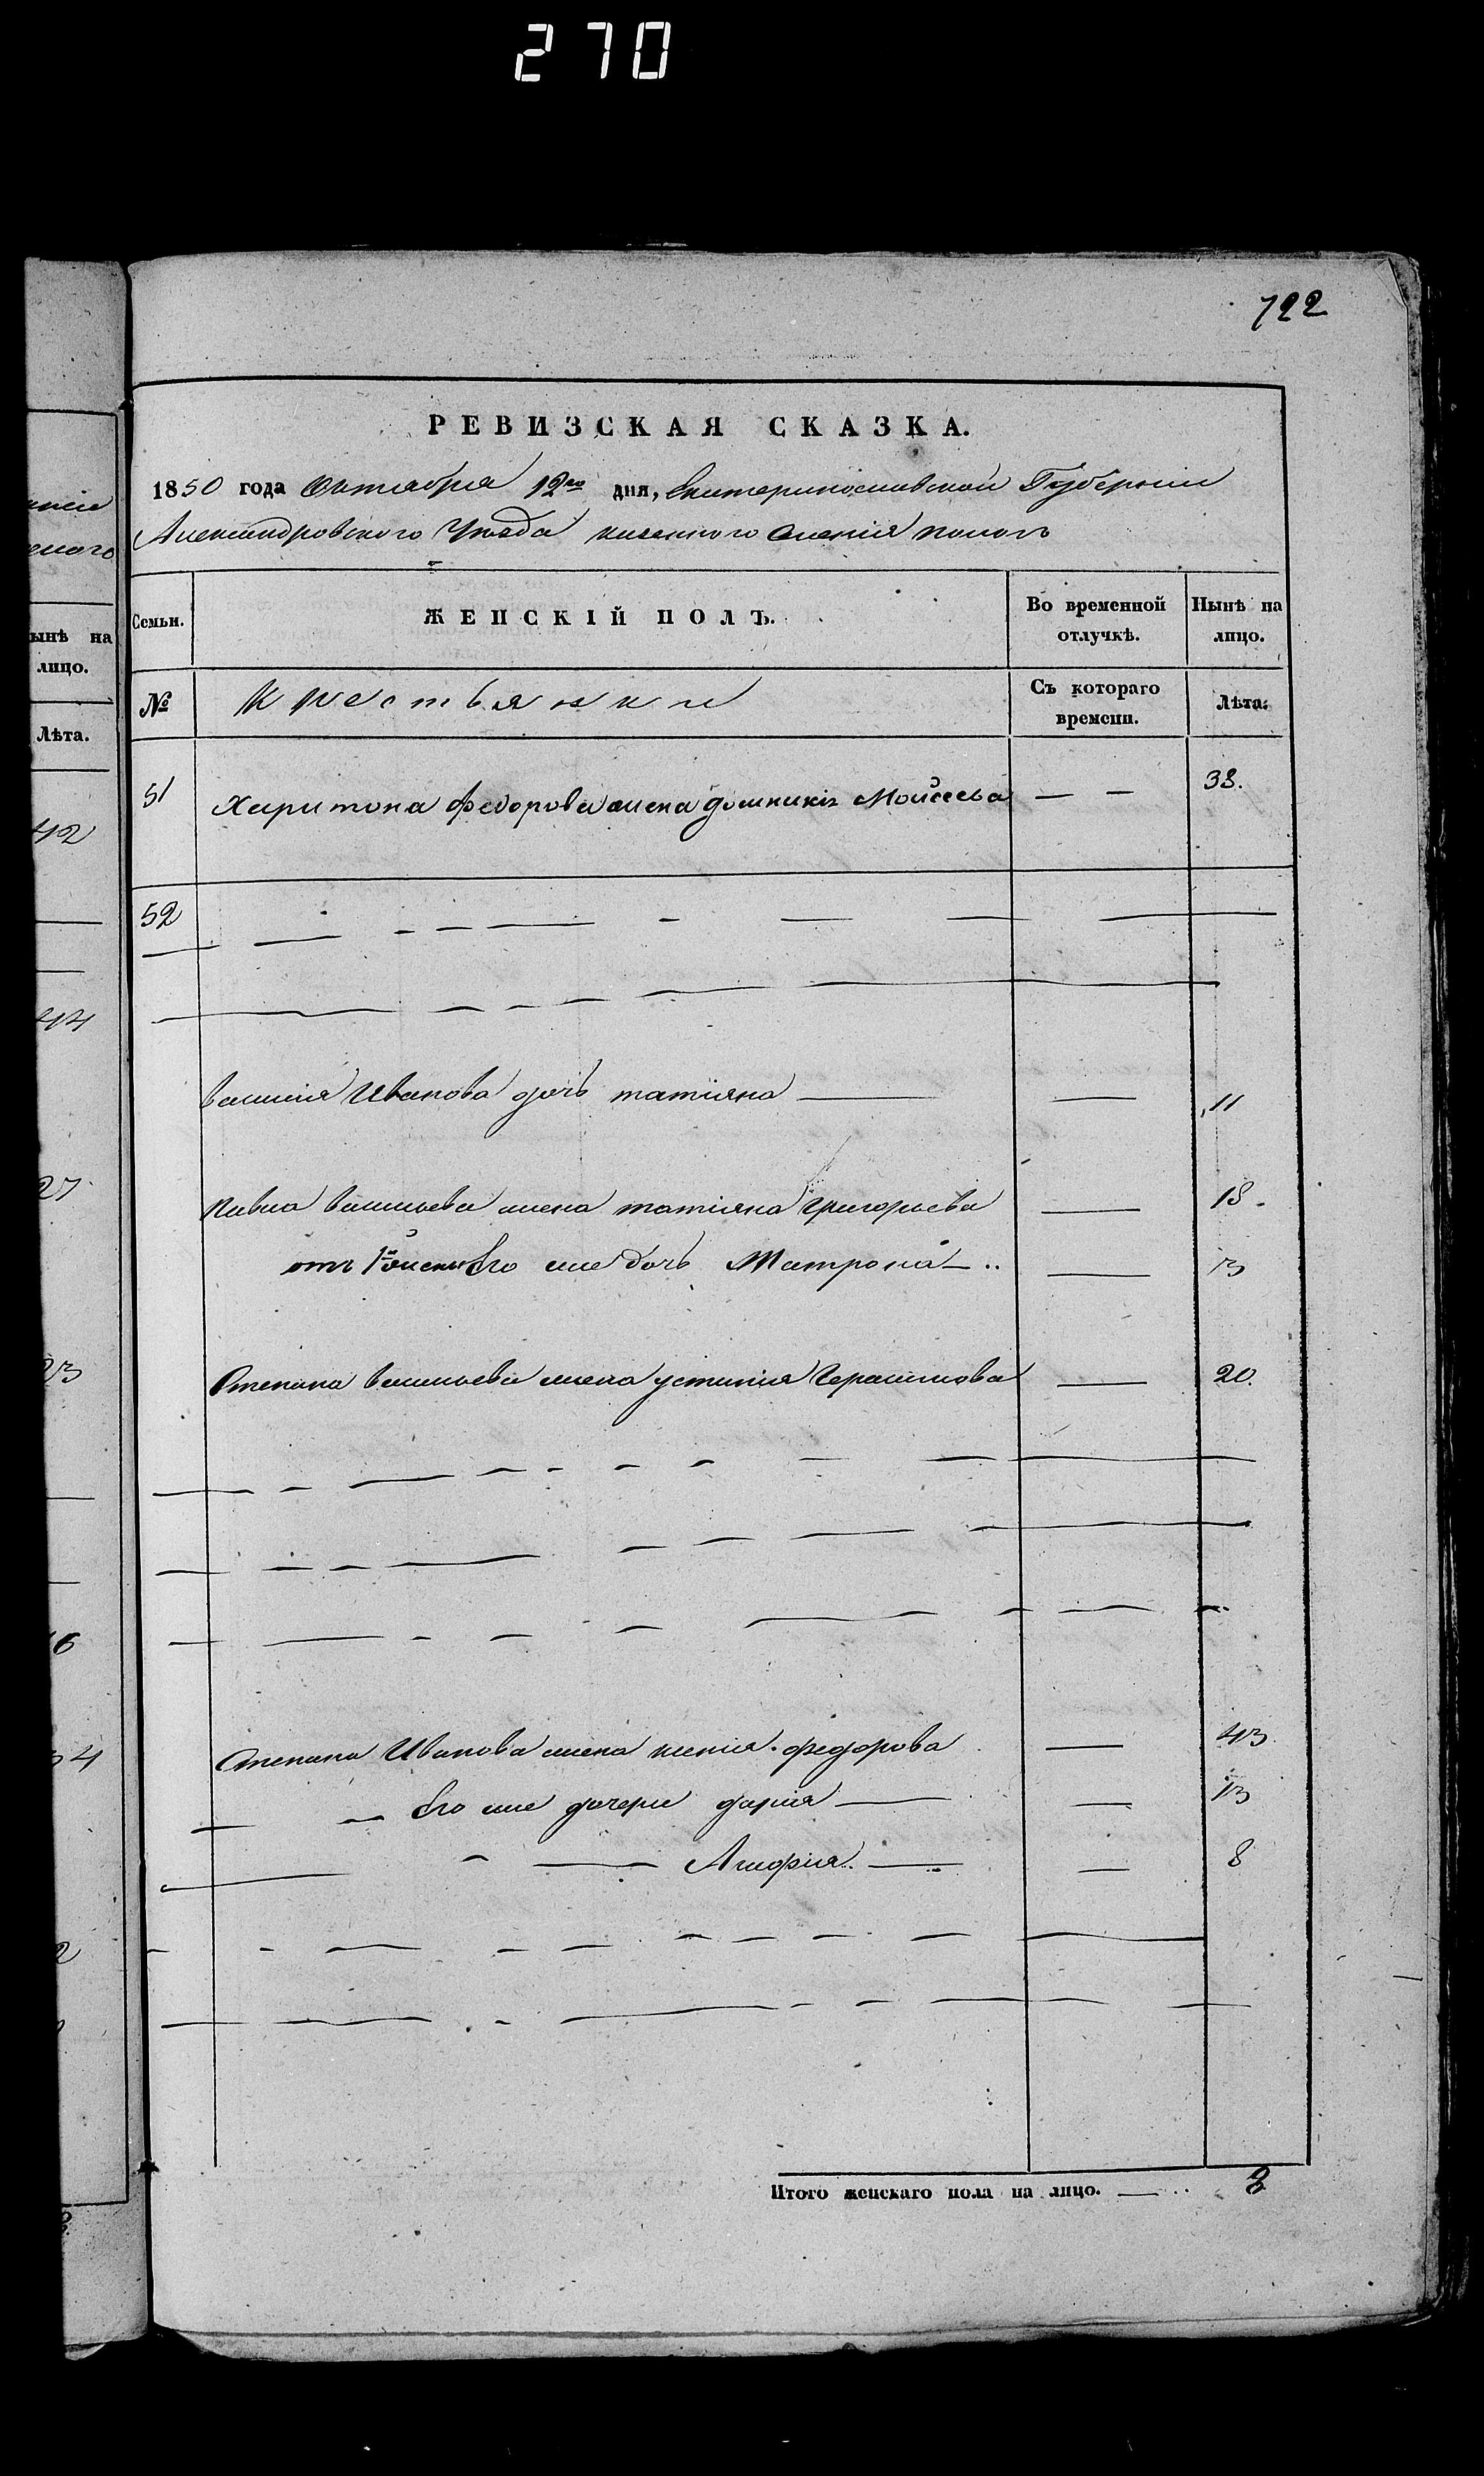 270
722
РЕВИЗСКАЯ СКАЗКА.
1850 года Октября 12го дня, Екатеринославской Губернии
Александровского Уезда казенного селения
Семьи. ЖЕНСКІЙ ПОЛЪ. Во временной отлучкѣ. Нынѣ на лицо.
№ Крестьянки Съ котораго времени. Лѣта.
51 Харитона Федорова жена домникія Моисеева — — 38.
52
Василія Иванова дочь татіяна — — 11
Павла Васильева жена татіяна григорьева — 18.
отъ 1й жены Его же дочь Матрона — 13
Степана Васильева жена устинія Герасимова — 20.
Степана Иванова жена ксенія федорова — 43
Его же дочери дарія — — 13
— — 8
Итого женскаго пола на лицо. — 8
ынѣ на
лицо.
Лѣта.
42
44
27
23